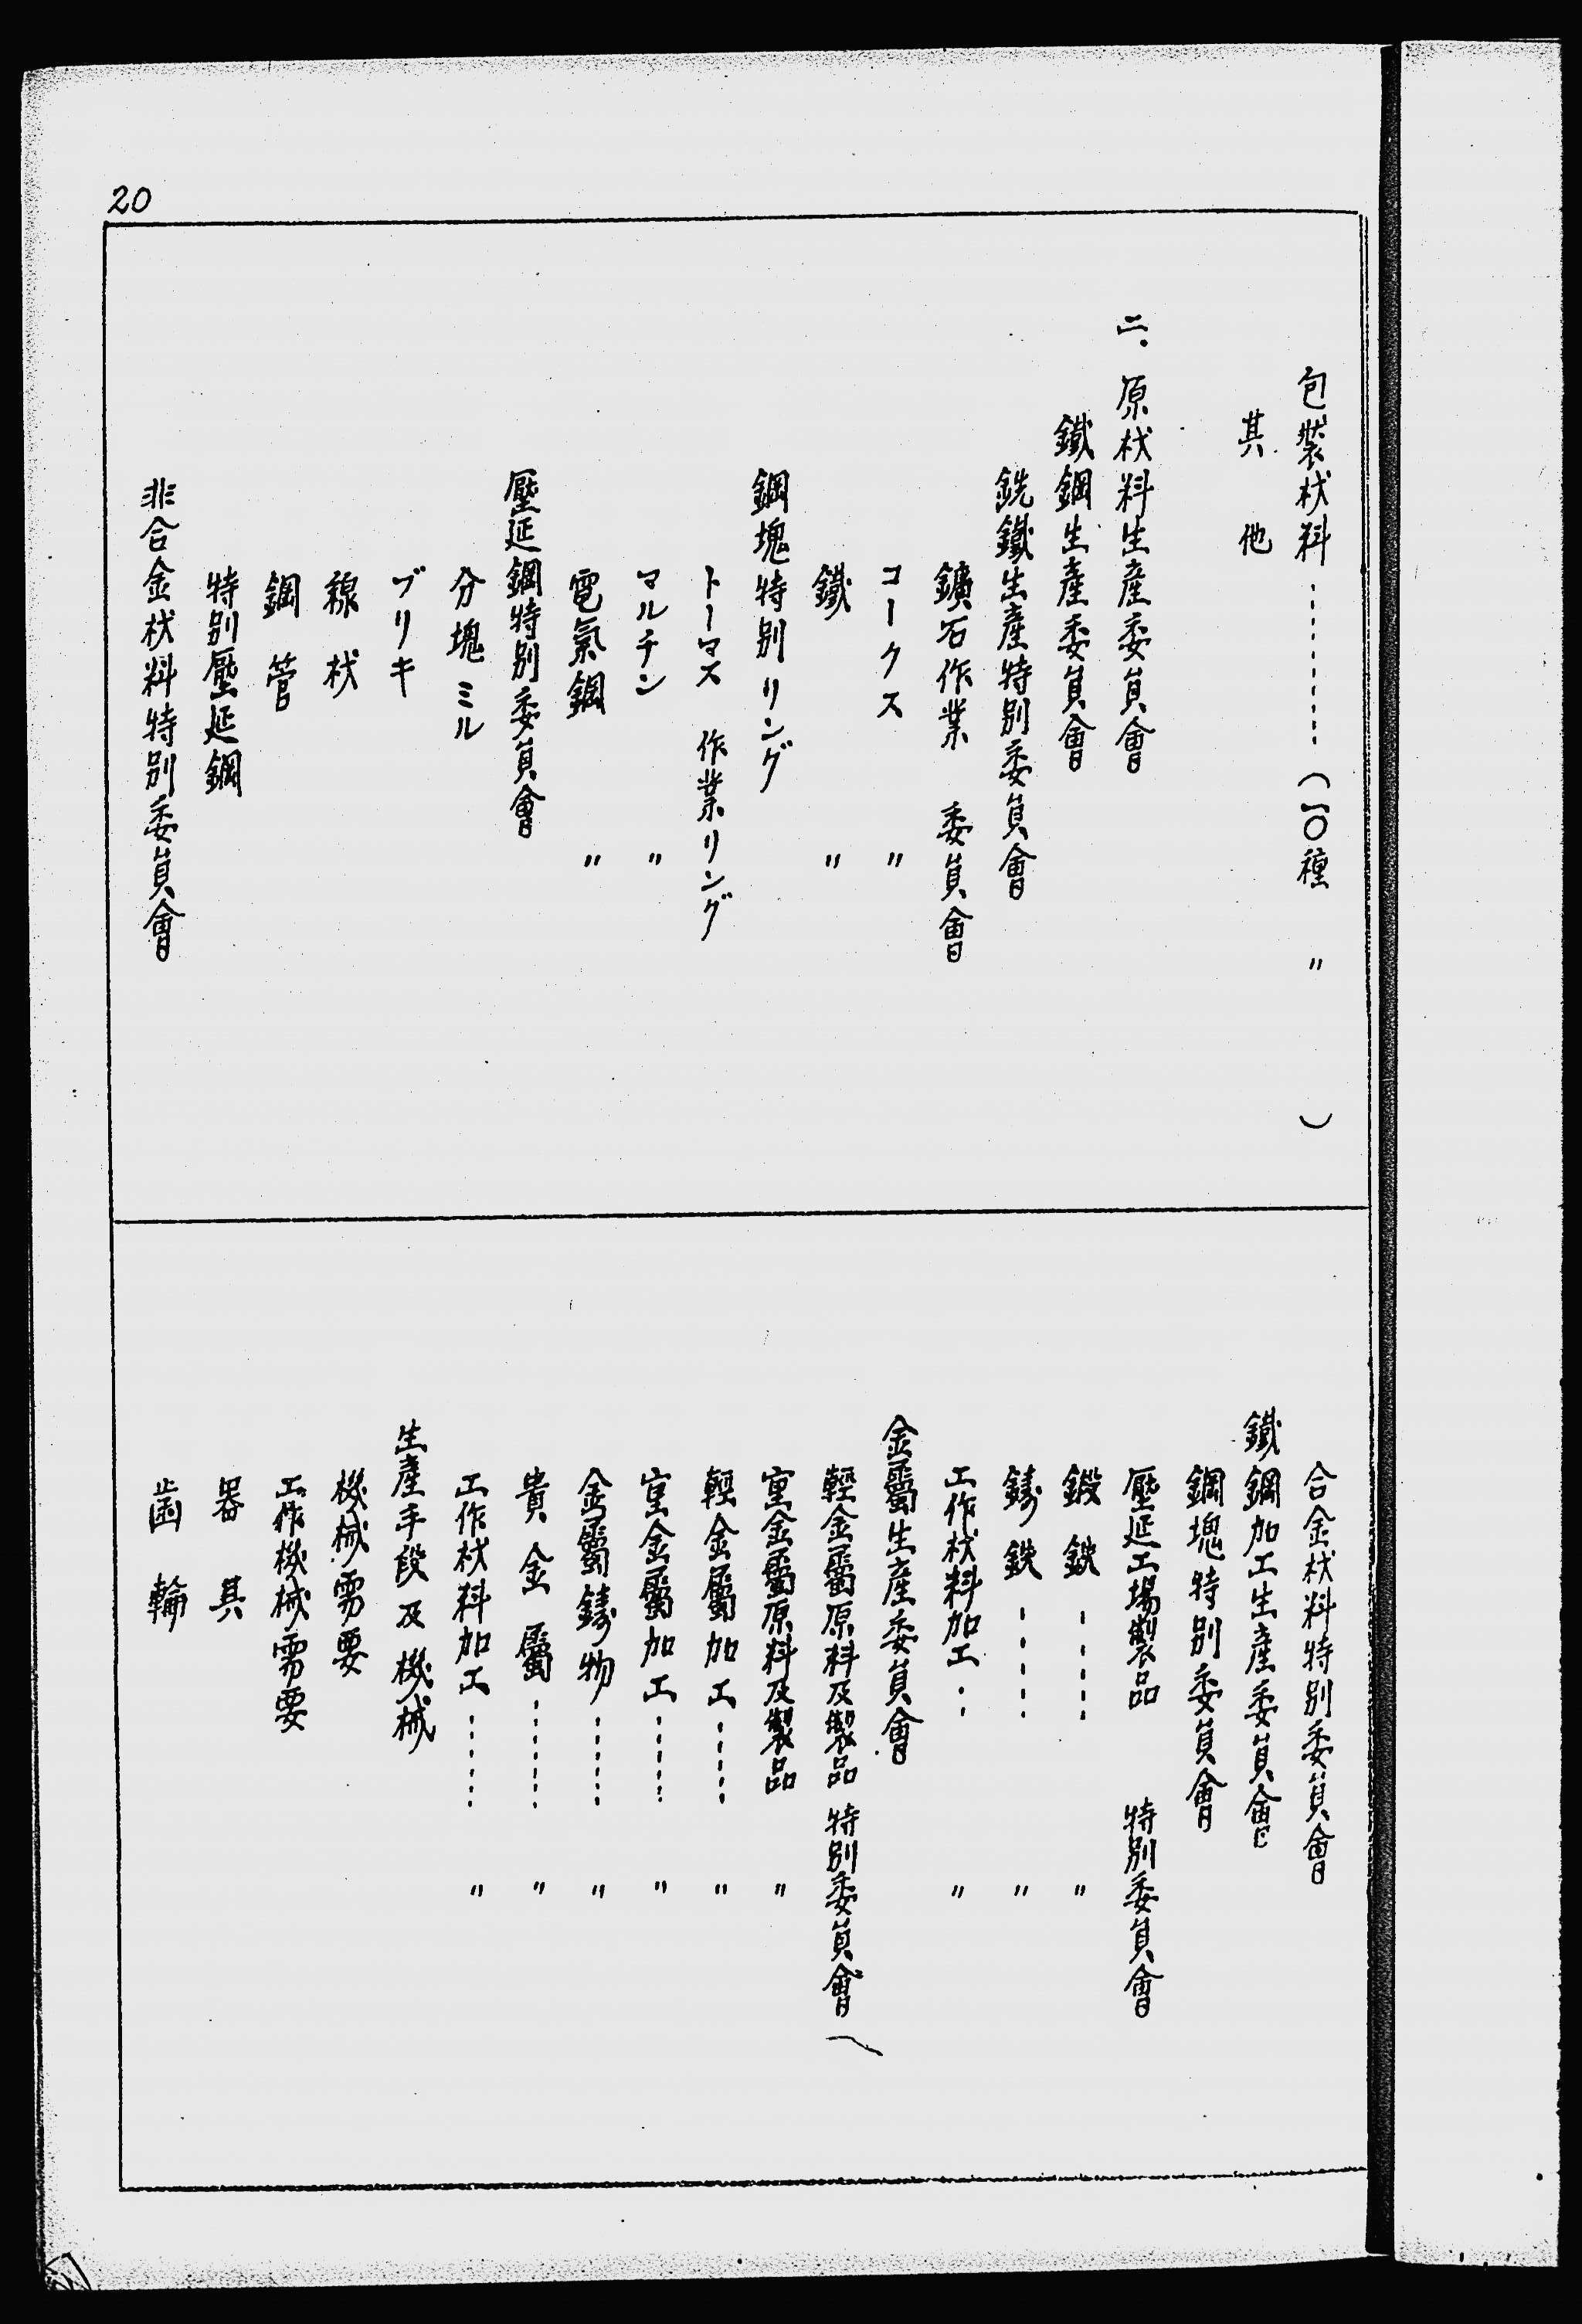 20
包裝材料…………(一〇種 〃 )
其他
二、原材料生產委員會
鐵鋼生產委員會
銑鐵生產特別委員會
鑛石作業 委員會
コークス 〃
鐵 〃
鋼塊特別リング
トーマス 作業リング
マルチン 〃
電氣鋼 〃
壓延鋼特別委員會
分塊ミル
ブリキ
線材
鋼管
特別壓延鋼
非合金材料特別委員會
合金材料特別委員會
鐵鋼加工生產委員會
鋼塊特別委員會
壓延工場製品 特別委員會
鍛鉄…… 〃
鑄鉄…… 〃
工作材料加工‥ 〃
金屬生產委員會
輕金屬原料及製品 特別委員會
重金屬原料及製品 〃
輕金屬加工…… 〃
重金屬加工…… 〃
金屬鑄物…… 〃
貴金屬…… 〃
工作材料加工…… 〃
生產手段及機械
機械需要
工作機械需要
器具
齒輪